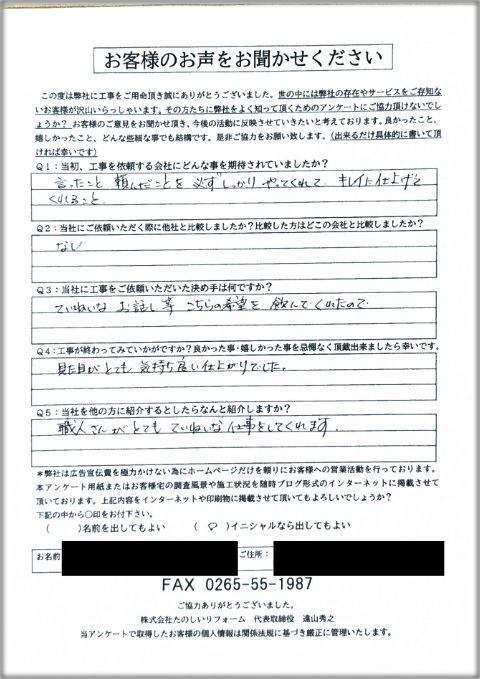 お客様のお声をお聞かせください
この度は弊社に工事をご用命頂き誠にありがとうございました。世の中には弊社の存在やサービスをご存知
ないお客様が沢山いらっしゃいます。その方たちに弊社をよく知って頂くためのアンケートにご協力頂けないでし
ょうか？ お客様のご意見をお聞かせ頂き、今後の活動に反映させていきたいと考えております。良かったこと、
嬉しかったこと、どんな些細な事でも結構です。是非ご協力をお願い致します。（出来るだけ具体的に書いて頂
ければ幸いです）
Q1：当初、工事を依頼する会社にどんな事を期待されていましたか？
言ったこと 頼んだことを 必ずしっかり やってくれて キレイに仕上げて
くれること
Q2：当社にご依頼いただく際に他社と比較しましたか？比較した方はどこの会社と比較しましたか？
なし
Q3：当社に工事をご依頼いただいた決め手は何ですか？
ていねいな お話し等 こちらの希望を 飲んでくれたので
Q4：工事が終わってみていかがですか？良かった事・嬉しかった事を忌憚なく頂戴出来ましたら幸いです。
見た目がとても 気持ち良い仕上がりでした。
Q5：当社を他の方に紹介するとしたらなんと紹介しますか？
職人さんがとても ていねいな仕事をしてくれます。
＊弊社は広告宣伝費を極力かけない為にホームページだけを頼りにお客様への営業活動を行っております。
本アンケート用紙またはお客様宅の調査風景や施工状況を随時ブログ形式のインターネットに掲載させて
頂いております。上記内容をインターネットや印刷物に掲載させて頂いてもよろしいでしょうか？
下記の中から○印をお付下さい。
（　　）名前を出してもよい　（ ○ ）イニシャルなら出してもよい
お名前 ご住所：
FAX 0265-55-1987
ご協力ありがとうございました。
株式会社たのしいリフォーム 代表取締役 遠山秀之
当アンケートで取得したお客様の個人情報は関係法規に基づき厳正に管理いたします。